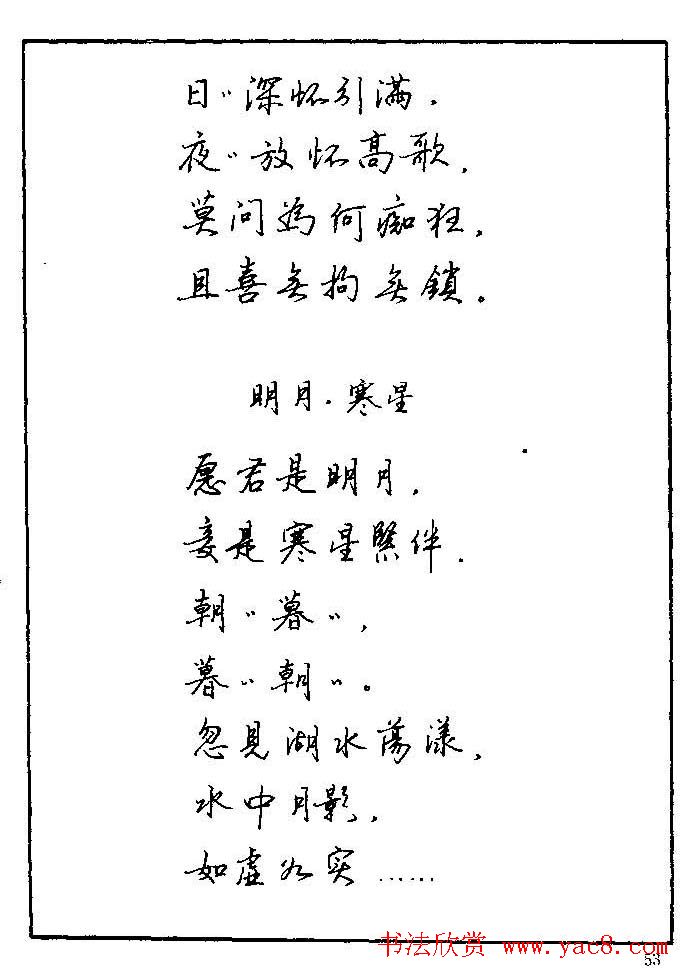 日〃深杯引满，
夜〃放怀高歌，
莫问為何痴狂，
且喜無拘無鎖。
明月·寒星
愿君是明月，
妾是寒星緊伴．
朝〃暮〃，
暮〃朝〃。
忽見湖水蕩漾，
水中月影，
如虚如实……
书法欣赏 www.yac8.com
53